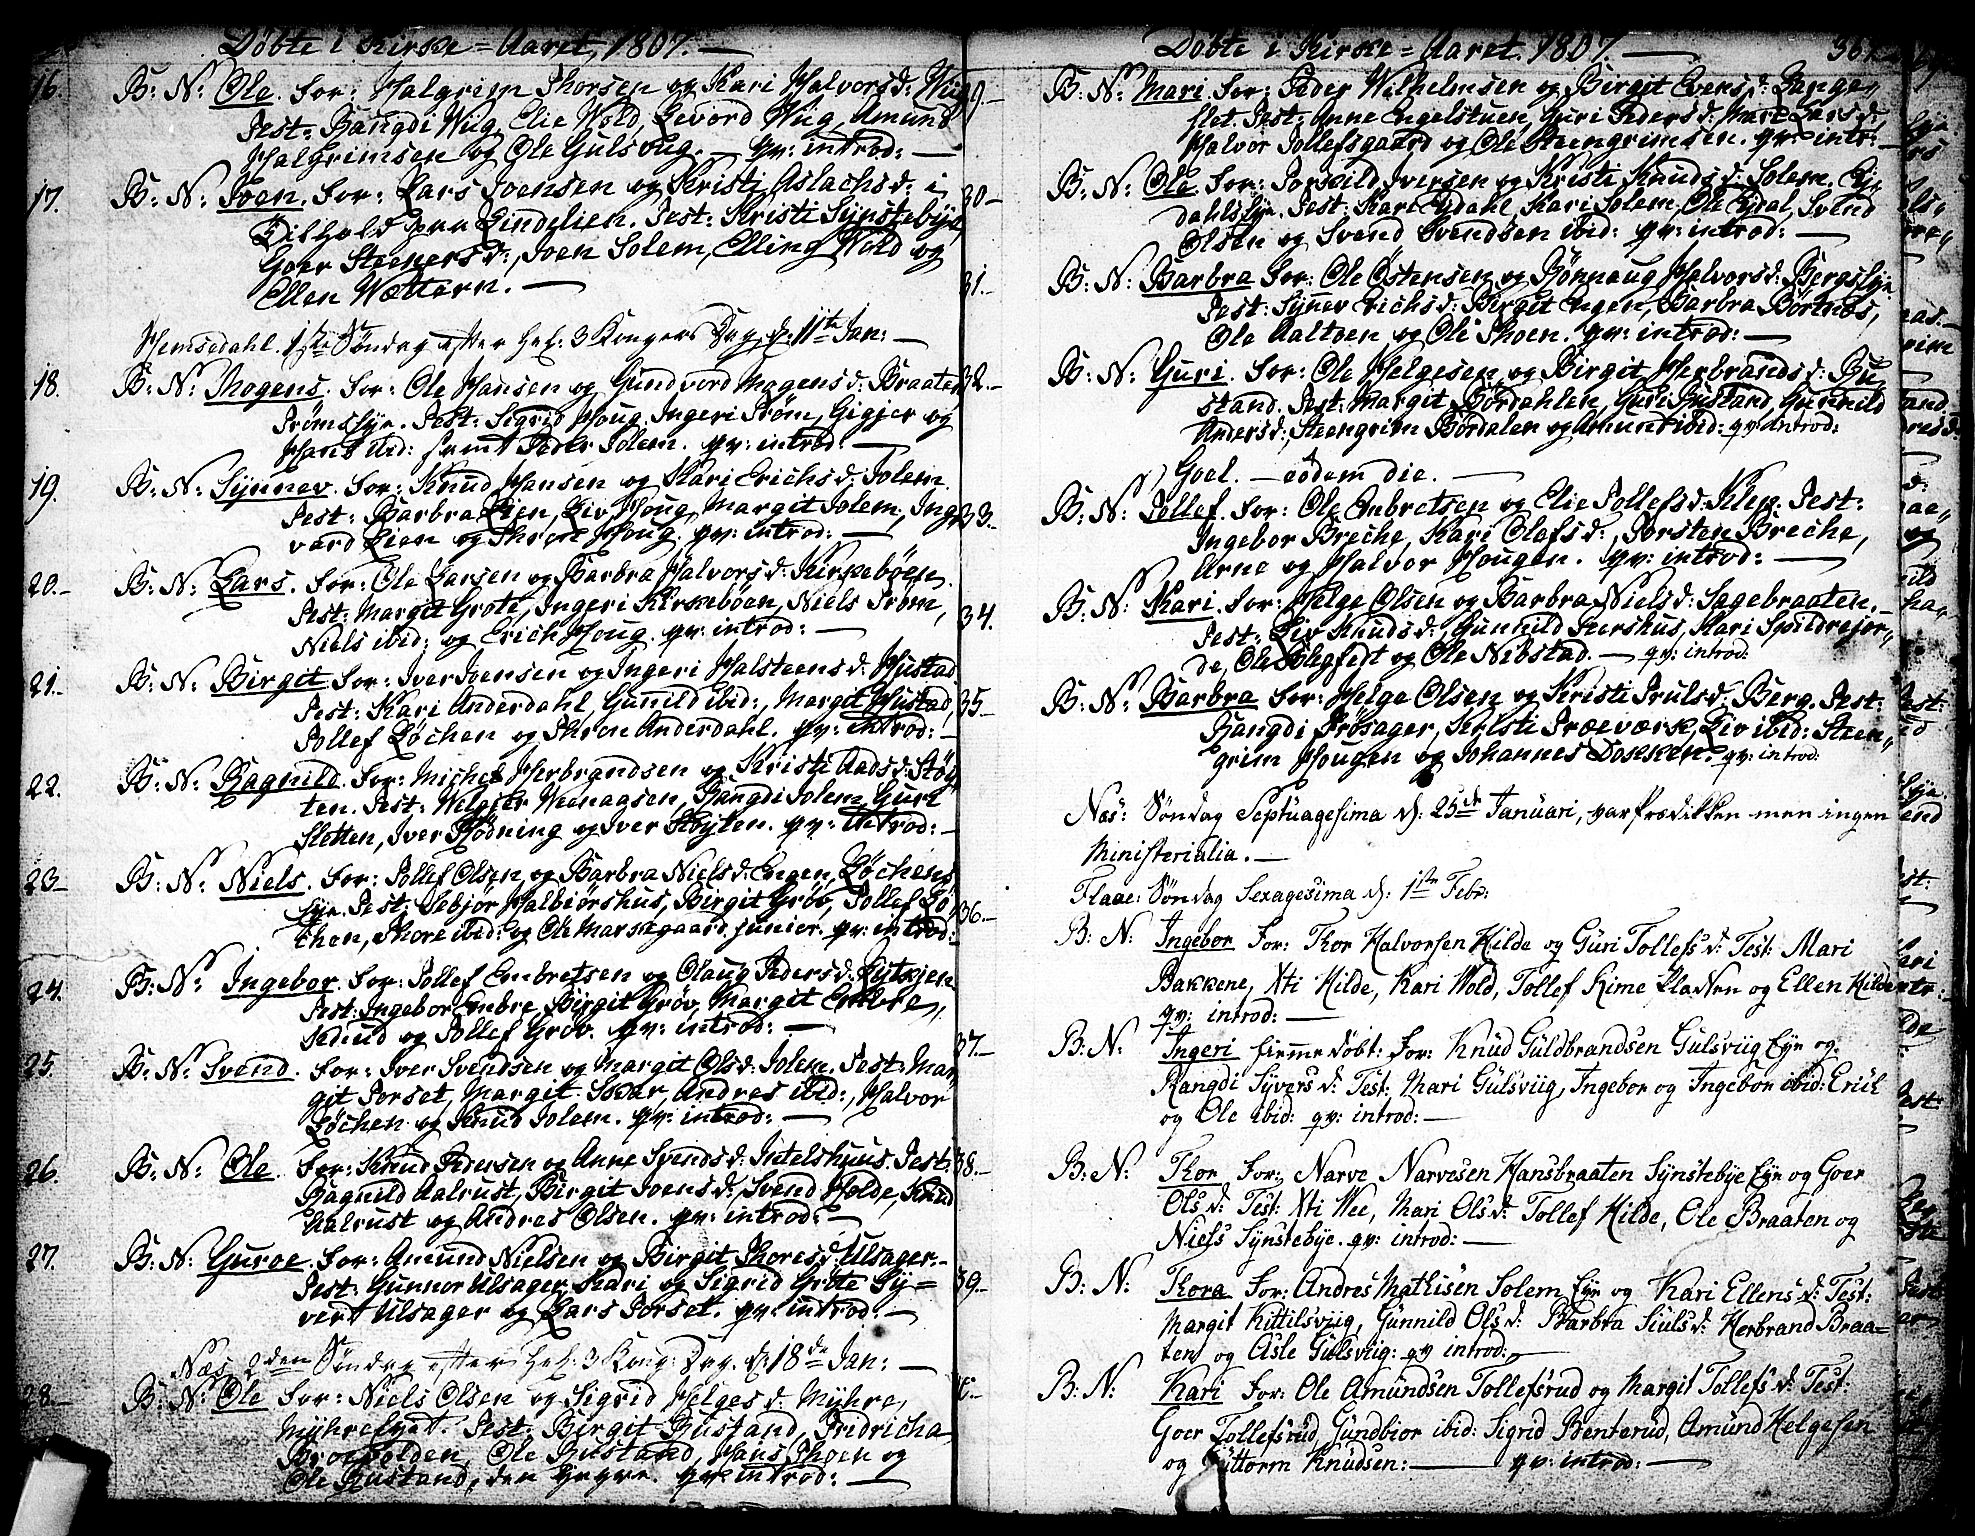 Döbte i Kirke-Aaret 1807.
16. B: N: Ole. For: Halgrim Thorsen og Kari Halvorsd: Wiig
Test: Rangdi Wiig, Elie Wold, Levord Wiig, Amund
Halgrimsen og Ole Gulsviig. — qv: introd: —
17. B: N: Joen. For: Lars Joensen og Kristi Aslachsd: i
paa Lindelien. Test: Kristi Synstebye,
Goer Steenersd:, Joen Solem, Elling Wold og
Ellen Wættern. —
Hemsedahl. 1ste Söndag efter Hel: 3 Kongers Dag, d: 11te Jan: —
18. B: N: Mogens. For: Ole Hansen og Gundvord Mogensd: Braaten
Trömseye. Test: Sigrid Houg, Ingeri Tröm, Gigjer og
Hans ibid: samt Peder Solem. qv: introd: —
19. B: N: Synnev. For: Knud Hansen og Kari Erichsd: Solem.
Test: Barbra Lien, Liv Houg, Margit Solem, Ing-
vard Lien og Thron Houg. qv: introd: —
20. B: N: Lars. For: Ole Larsen og Barbra Halvorsd: Kirkeböen.
Test: Margit Grote, Ingeri Kirkeböen, Niels Tröm,
Niels ibid: og Erich Houg. qv: introd: —
21. B: N: Birgit. For: Iver Joensen og Ingeri Halsteensd: Hustad.
Test: Kari Anderdahl, Gunild ibid:, Margit Hustad,
Tollef Löchen og Thron Anderdahl. qv: introd: —
22. B: N: Ragnild. For: Michel Herbrandsen og Kristi Aadsd: Stöy-
ten. Test: Rangdi Solem, Guri
Sletten, Iver Ködning og Iver Stöyten. qv: introd: —
23. B: N: Niels. For: Tollef Olsen og Barbra Nielsd: Engen, Löchens
Eye. Test: Sebjör Halbiörshus, Birgit Gröv, Tollef Lö-
chen, Thore ibid: og Ole Marskgaard junior. qv: introd:
24. B: N: Ingebor. For: Tollef Embretsen og Olaug Pedersd: Lytkjen
Test: Ingebor Embre, Birgit Gröv, Margit Embre,
og Tollef Gröv. qv: introd: —
25. B: N: Svend. For: Iver Svendsen og Margit Olsd: Solem. Test: Mar-
git Torset, Margit Svar, Andres ibid:, Halvor
Löchen og Knud Solem. qv: introd: —
26. B: N: Ole. For: Knud Pedersen og Anne Svendsd: Intelshuus. Test:
Ragnild Aalrust, Birgit Joensd:, Svend Holde, Knud
Aalrust og Andres Olsen. qv: introd: —
27. B: N: Guroe. For: Amund Nielsen og Birgit Thoresd: Ulsager.
Test: Gunnor Ulsager, Kari og Sigrid Grote, Sy-
vert Ulsager og Lars Torset. qv: introd: —
Næs 2den Söndag efter Hel: 3 Kong: Dag. d: 18de Jan: —
28. B: N: Ole For: Niels Olsen og Sigrid Helgesd: Myhre,
Myhre Test: Birgit Bustand, Fridricha
Ole Bustand, Hans Skoen og
Ole Bustand, den yngre. qv: introd: —
Döbte i Kirke-Aaret 1807
29. B: N: Mari. For: Peder Wilhelmsen og Birgit Evensd: Lange-
slet. Test: Anne Engelstuen, Guri Pedersd: Mari Larsd:
Halvor Tollefsgaard og Ole Steengrimsen. qv: intr: —
30. B: N: Ole For: Torkild Iversen og Kristi Knudsd: Solem. Ey-
dahlseye. Test: Kari Eydahl, Kari Solem, Ole Ejdal, Svend
Olsen og Svend Svendsen ibid: qv: introd: —
31. B: N: Barbra For: Ole Ostensen og Rönnaug Halvorsd: Bergseye
Test: Synev Erichsd: Birgit Engen, Barbra Börtnes,
Ole Aaltoen og Ole Skoen. qv: introd: —
32. B: N: Guri. For: Ole Helgesen og Birgit Herbrandsd: Bu-
stand. Test: Margit Bördahlen, Guri Bustand, Gunnild
Andersd:, Steengrim Bördalen og Amund ibid: qv: introd:
Goel. — eodem die. —
33. B: N: Tollef. For: Ole Embretsen og Elie Tollefsd: Test:
Ingebor Breche, Kari Olafsd:, Torsten Breche,
Arne og Halvor Hougen. qv: introd: —
34. B: N: Kari. For: Helge Olsen og Barbra Nielsd: Sagebraaten.
Test: Liv Knudsd:, Gunnild Seershus, Kari
de, Ole og Ole Nibstad. — qv: introd:
35. B: N: Barbra For: Helge Olsen og Kristi Trulsd: Berg. Test:
Rangdi Frösager, Kristi Træeværk, Liv ibid: Steen-
grim Hougen og Johannes Dokken. qv: introd:
Næs: Söndag Septuagesima d: 25de Januari, var Prædikken men ingen
Ministerialia. —
Flaae: Söndag Sexagesima d: 1ste Febr:
36. B: N: Ingebor For: Thor Halvorsen Hilde og Guri Tollefsd: Test: Mari
Bakkene, Xti Hilde, Kari Wold, Tollef Rime og Ellen Hilde
qv: introd: —
37. B: N: Ingeri hiemedöbt: For: Knud Guldbrandsen Gulsviig Eye og
Rangdi Syversd: Test: Mari Gulsviig, Ingebor og Ingebor ibid: Erich
og Ole ibid: qv: introd: —
38. B: N: Thor For: Narve Narvesen Hansbraaten Synstebye Eye og Goer
Olsd: Test: Xti Wee, Mari Olsd: Tollef Hilde, Ole Braaten og
Niels Synstebye. qv: introd: —
39. B: N: Thora For: Andres Mathisen Solem Eye og Kari Ellensd: Test:
Margit Kittilsviig, Gunnild Olsd: Barbra Siulsd: Herbrand Braa-
ten og Asle Gulsviig: qv introd: —
B: N: Kari For: Ole Amundsen Tollefsrud og Margit Tollefsd: Test:
Goer Tollefsrud, Gundbior ibid: Sigrid Benterud, Amund Helgesen
og Guttorm Knudsen: — qv: introd: —